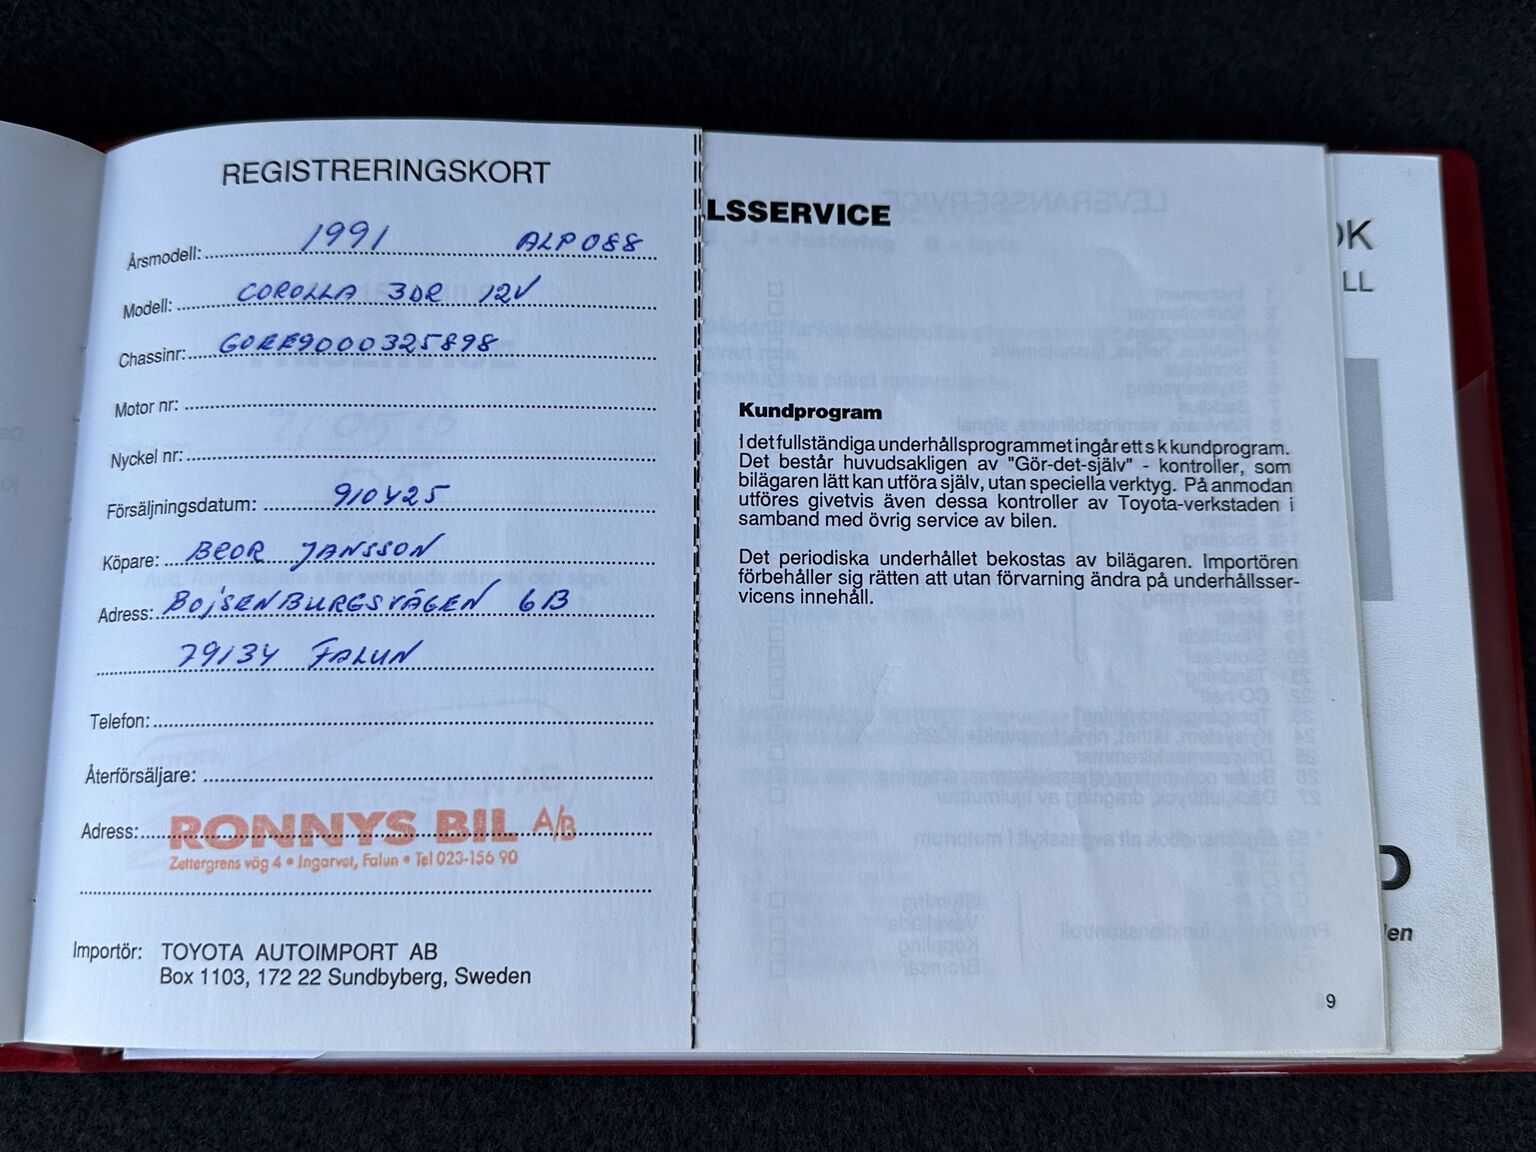 REGISTRERINGSKORT
Årsmodell: 1991 ALP088
Modell: COROLLA 3DR 12V
Chassinr:
Motor nr:
Nyckel nr:
Försäljningsdatum: 910425
Köpare: BROR JANSSON
Adress: BOJSENBURGSVÄGEN 6B
79134 FALUN
Telefon:
Återförsäljare:
Adress: RONNYS BIL A/B
Zettergrens väg 4 • Ingarvet, Falun • Tel 023-156 90
Importör: TOYOTA AUTOIMPORT AB
Box 1103, 172 22 Sundbyberg, Sweden
LSSERVICE
Kundprogram
I det fullständiga underhållsprogrammet ingår ett s k kundprogram.
Det består huvudsakligen av "Gör-det-själv" - kontroller, som
bilägaren lätt kan utföra själv, utan speciella verktyg. På anmodan
utföres givetvis även dessa kontroller av Toyota-verkstaden i
samband med övrig service av bilen.
Det periodiska underhållet bekostas av bilägaren. Importören
förbehåller sig rätten att utan förvarning ändra på underhållsser-
vicens innehåll.
9
OK
LL
D
en